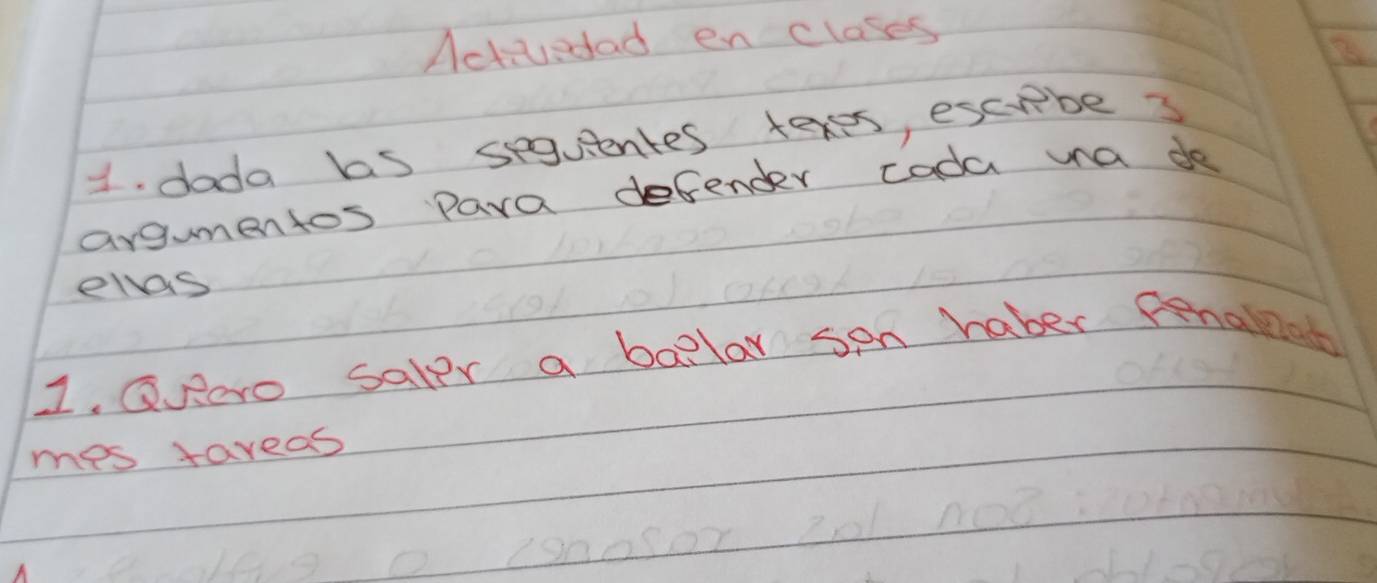 Actividad en clases
1. dada las siguientes tesis, escribe 3
argumentos para defender cada una de
ellas
1. Quiero salir a bailar sin haber finalizado
mis tareas